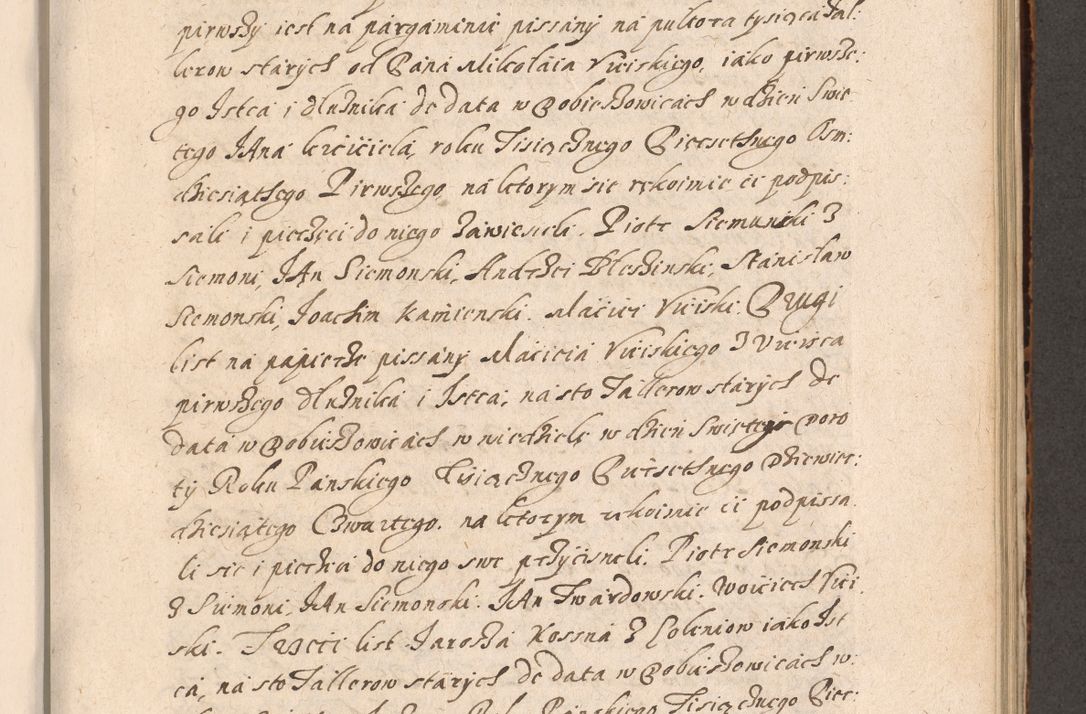 pirwszy iest na pargaminie pissany na pultora tysiąca tal:
lerow starych od Pana Mikolaia Vieiskiego, iako pirwsze:
go Istca i dlużnika de data w Pobieszowicach w dzień Swie
tego IAna krzciciela, roku Tisiącznego Pięcsetnego Osm:
dziesiątego Pirwszego, na ktorym sie rękoimie ci podpis:
sali i pieczęci do niego zawiesieli. Piotr Siemunski z
Siemoni, IAn Siemonski, Andrzei Bleszinski, Stanislaw
Siemonski, Joachim Kamienski. Maciei Vieiski. Drugi
list na papierze pissany Macieia Vieiskiego z Vieisca
pirwszego dlużnika i Istca, na sto Tallerow starych de
data w Pobieszowicach w niedzielę w dzien Swiętej Doro
ty Roku Panskiego Tisiącznego Pięcsetnego Dziewięc:
dziesiątego Czwartego. na ktorym rękoimie ci podpissa
li sie i pieczęci do niego swe przycisneli. Piotr Siemonski
z Siemoni, IAn Siemonski. IAn Twardowski. Woiciech Viei
ski. Trzeci list Jarosza Kossna z Coleniow iako Ist
ca, na sto Tallerow starych de data w Pobieszowicach w:
Roku Panskiego Tisiącznego Pięc: